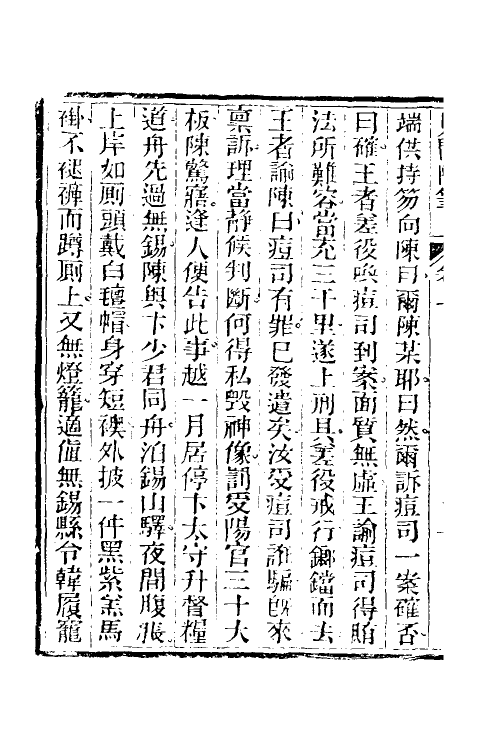 端供持笏向陳曰爾陳某耶曰然爾訴痘司一案確否
曰確王者差役喚痘司到案面質無虛王諭痘司得賄
法所難容當充三千里遂上刑具差役戒行鋃鐺而去
王者諭陳曰痘司有罪已發遣矣汝受痘司誰騙旣來
稟訴理當静候判斷何得私毀神像罰受陽官三十大
板陳驚寤逢人便告此事越一月居停卞太守升督糧
道舟先過無錫陳與卞少君同舟泊錫山驛夜間腹漲
上岸如厠頭戴白氊帽身穿短襖外披一件黑紫羔馬
褂不褪褲而蹲厠上又無燈籠適值無錫縣令韓履寵